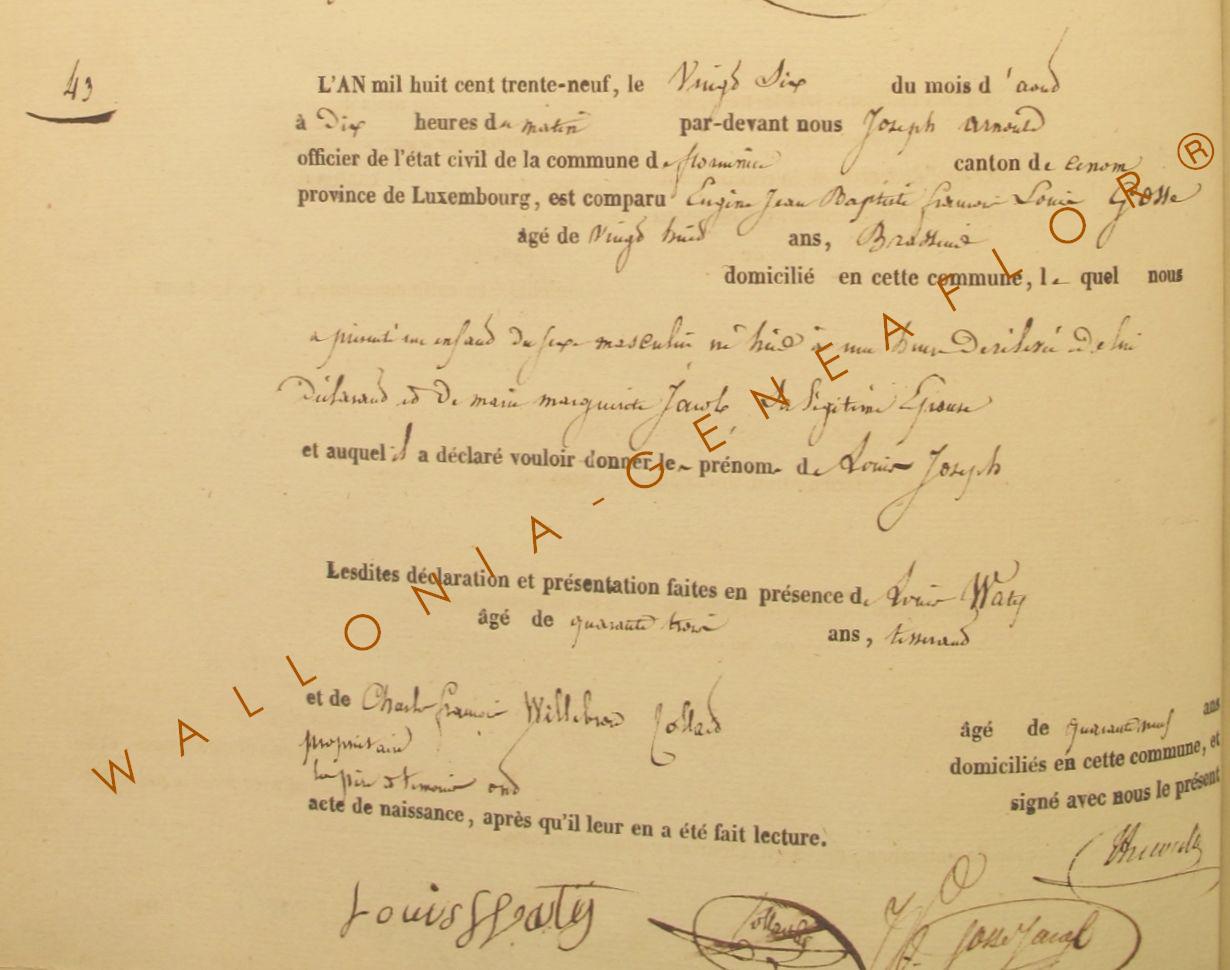 43
L'AN mil huit cent trente-neuf, le Vingt Six du mois d'aout
à Dix heures du matin par-devant nous Joseph Arnould
officier de l'état civil de la commune de canton de
province de Luxembourg, est comparu Eugène Jean Baptiste françois Louis Gosse
âgé de Vingt huit ans, Brasseur
domicilié en cette commune, le quel nous
a presenté un enfant du sexe masculin né hier à heure De relevée de lui
Déclarant et De marie marguerite Jacob sa légitime Epouse
et auquel il a déclaré vouloir donner les prénoms de Louis Joseph
Lesdites déclaration et présentation faites en présence de Louis Waty
âgé de quarante trois ans, tisserand
et de Charles françois Willebrord Collard
âgé de quarante neuf ans
propriétaire
domiciliés en cette commune, et
les père et temoins ont signé avec nous le présent
acte de naissance, après qu'il leur en a été fait lecture.
Louis Waty
Collard
Gosse Jacob
WALLONIA-GENEAFLOR®